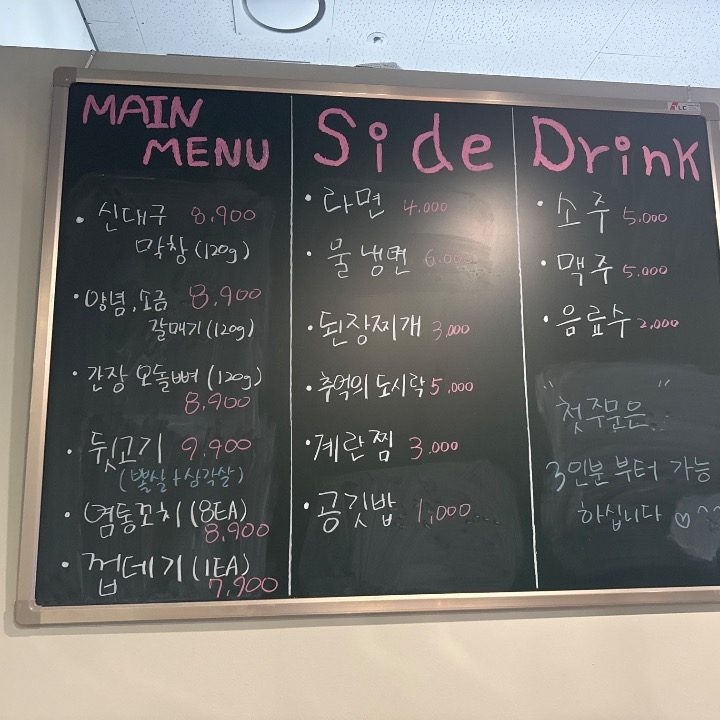 MAIN
MENU
• 신대구 8,900
막창 (120g)
• 양념, 소금 8,900
갈매기 (120g)
• 간장 오돌뼈 (120g)
8,900
• 뒷고기 9,900
(뽈살+삼각살)
• 염통꼬치 (8EA)
8,900
• 껍데기 (1EA)
7,900
Side
• 라면 4,000
• 물냉면 6,000
• 된장찌개 3,000
• 추억의 도시락 5,000
• 계란찜 3,000
• 공깃밥 1,000
Drink
• 소주 5,000
• 맥주 5,000
• 음료수 2,000
"첫주문은"
3인분 부터 가능
하십니다 ♡^^